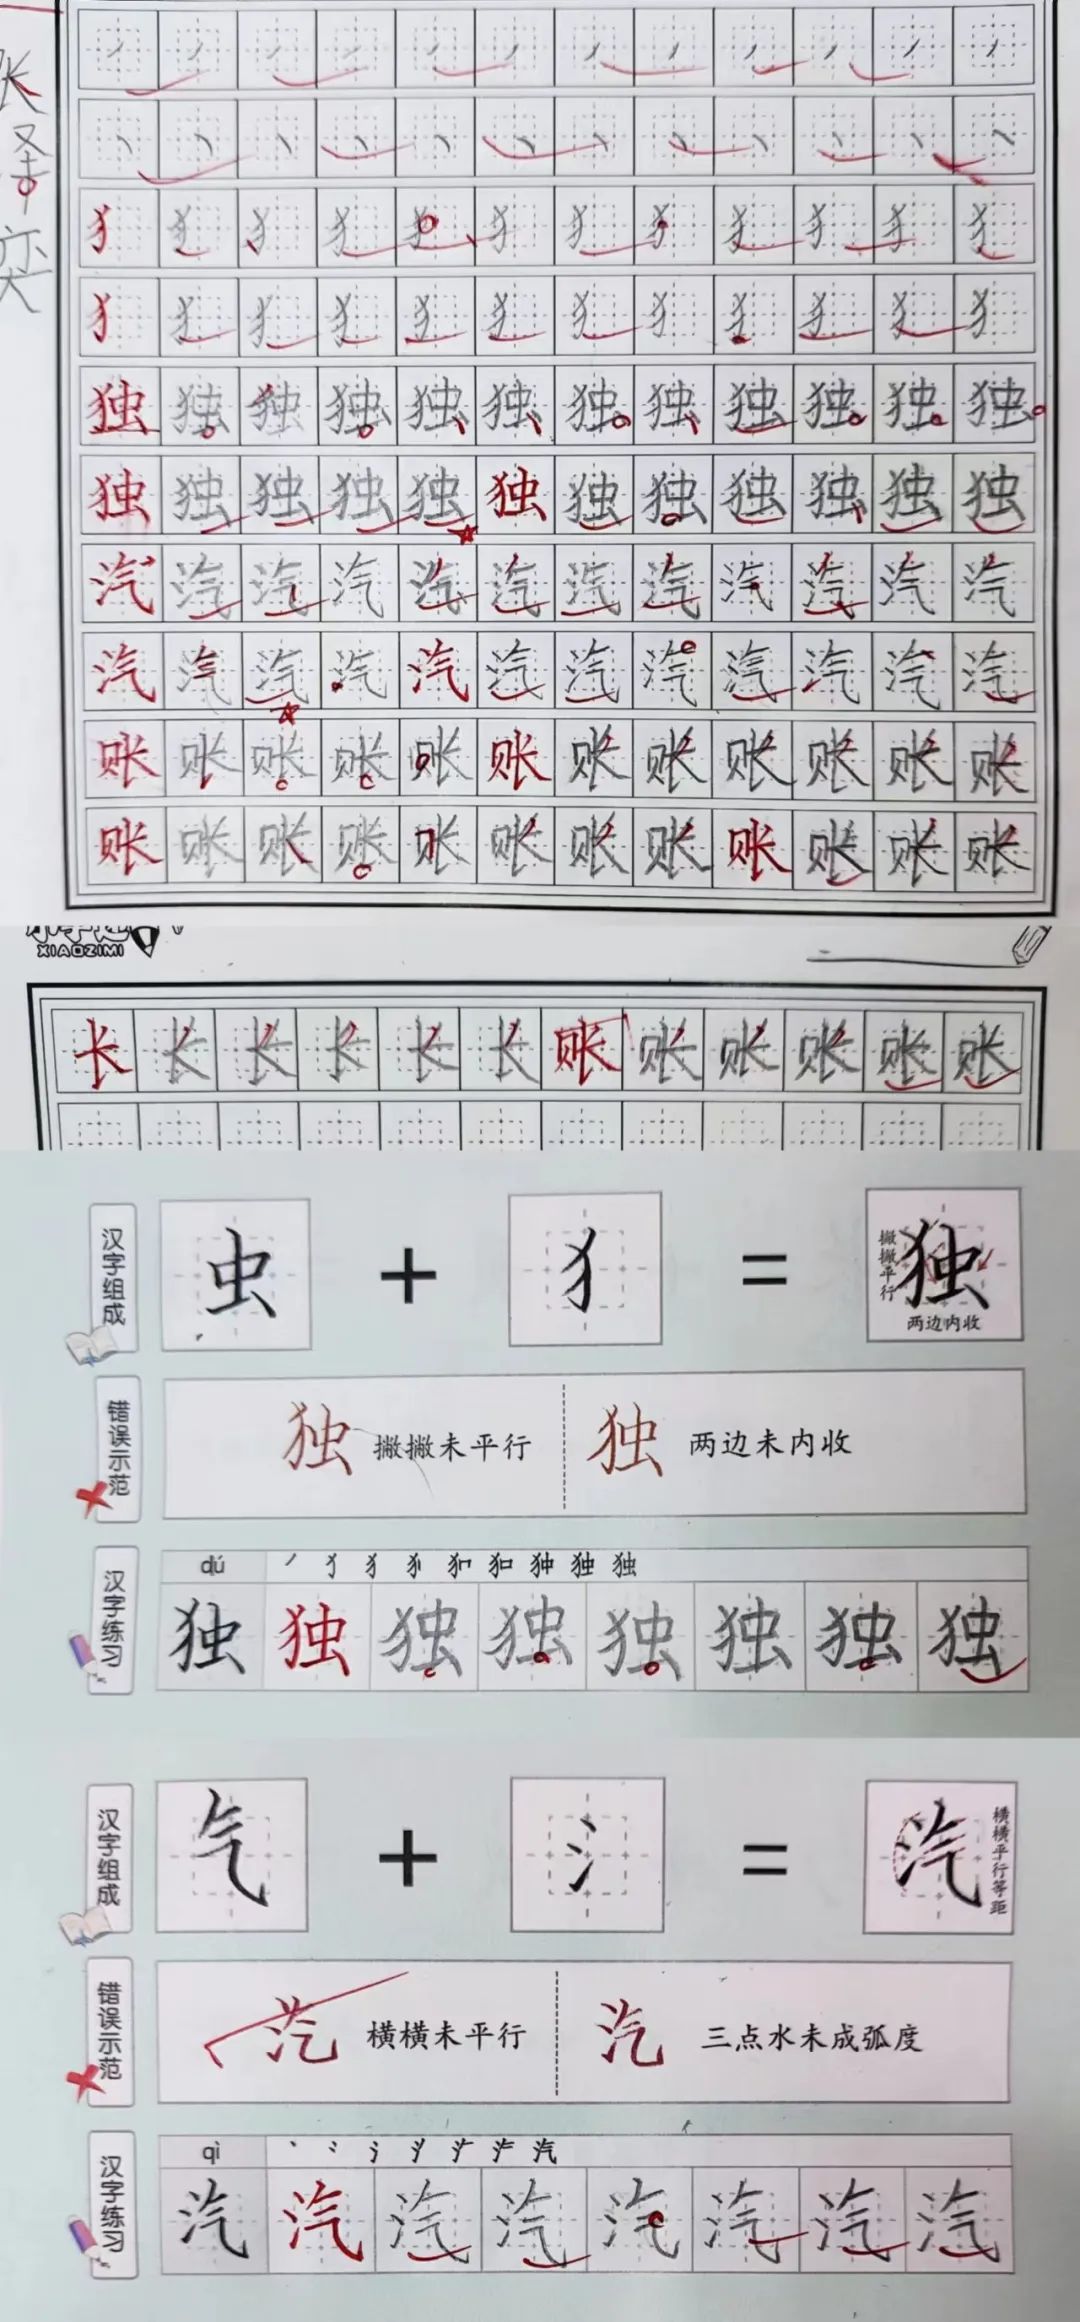 犭犭犭犭犭犭犭犭犭犭犭犭
犭犭犭犭犭犭犭犭犭犭犭犭
独独独独独独独独独独独独
独独独独独独独独独独独独
汽汽汽汽汽汽汽汽汽汽汽汽
汽汽汽汽汽汽汽汽汽汽汽汽
账账账账账账账账账账账账
账账账账账账账账账账账账
XIAOZIMI
长长长长长长账账账账账账
汉字组成
虫 + 犭 = 独
撇撇平行
两边内收
错误示范
独 撇撇未平行
独 两边未内收
汉字练习
dú
独独独独独独独独
汉字组成
气 + 氵 = 汽
横横平行等距
错误示范
汽 横横未平行
汽 三点水未成弧度
汉字练习
qì
汽汽汽汽汽汽汽汽